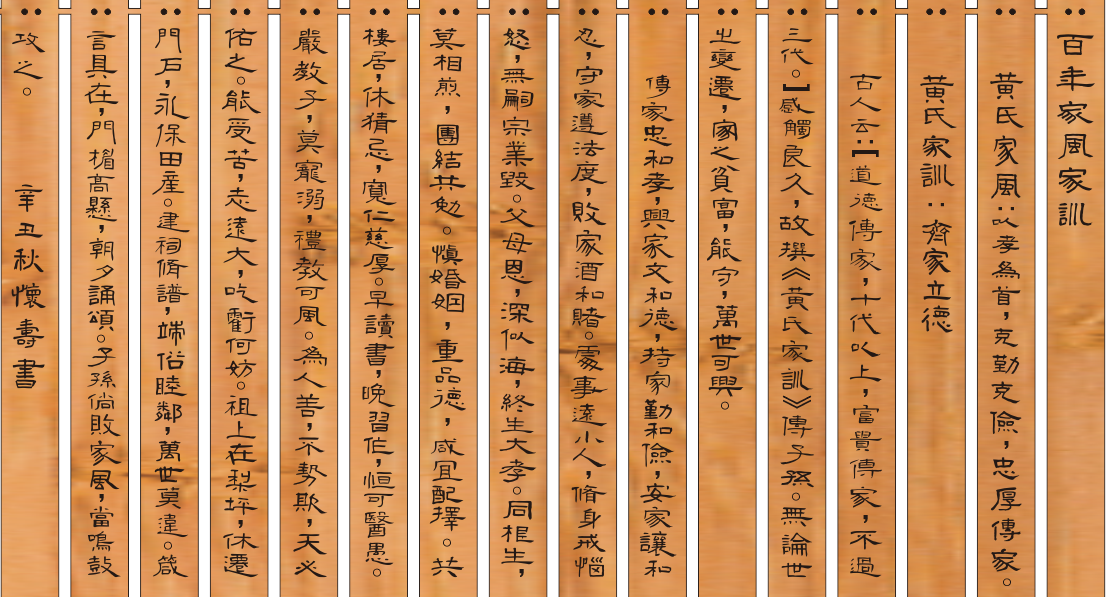 百年家風家訓
黃氏家風：以孝為首，克勤克儉，忠厚傳家。
黃氏家訓：齊家立德
古人云：【道德傳家，十代以上，富貴傳家，不過
三代。】感觸良久，故撰《黃氏家訓》傳子孫。無論世
之變遷，家之貧富，能守，萬世可興。
傳家忠和孝，興家文和德，持家勤和儉，安家讓和
忍，守家遵法度，敗家酒和賭。處事遠小人，脩身戒惱
怒，無嗣宗業毀。父母恩，深似海，終生大孝。同根生，
莫相煎，團結共勉。慎婚姻，重品德，咸宜配擇。共
樓居，休猜忌，寬仁慈厚。早讀書，晚習作，恒可醫愚。
嚴教子，莫寵溺，禮教可風。為人善，不勢欺，天必
佑之。能受苦，志遠大，吃虧何妨。祖上在梨坪，休遷
門石，永保田產。建祠脩譜，端俗睦鄰，萬世莫違。箴
言具在，門楣高懸，朝夕誦頌。子孫倘敗家風，當鳴鼓
攻之。 辛丑秋懷壽書